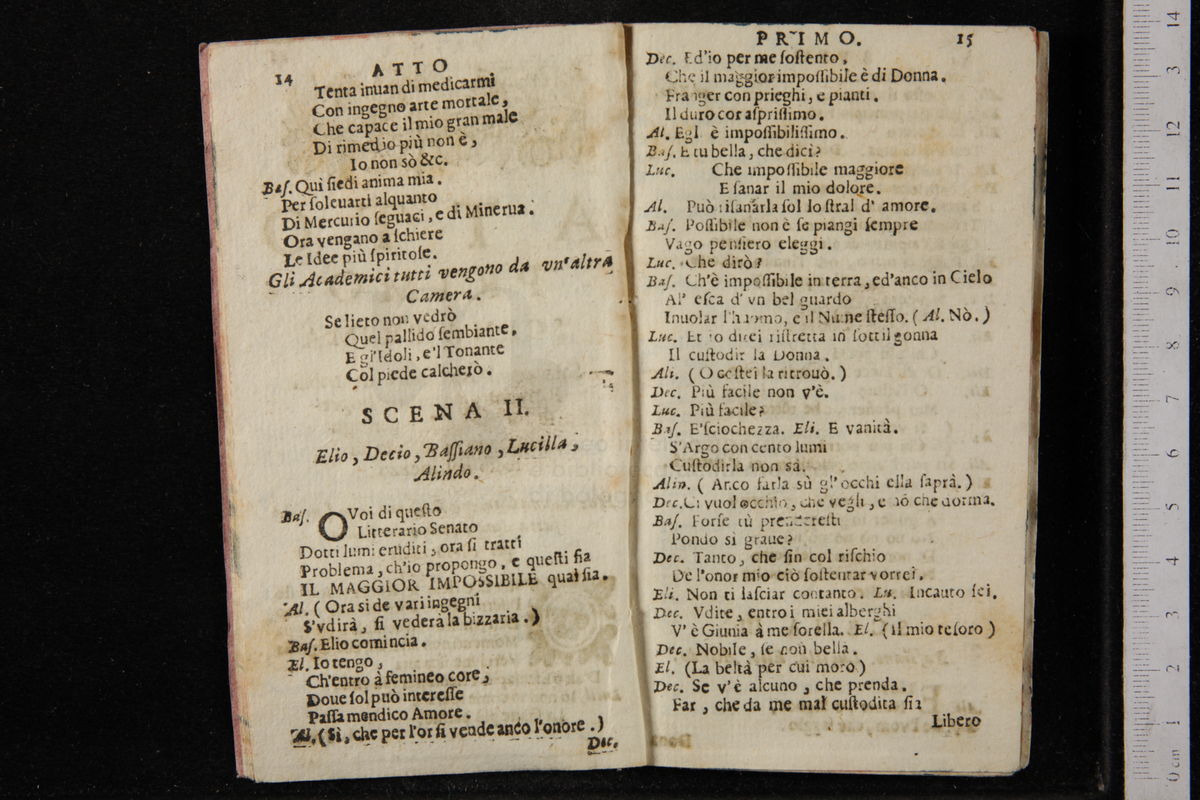 14
ATTO
Tenta inuan di medicarmi
Con ingegno arte mortale,
Che capace il mio gran male
Di rimedio più non è,
Io non sò &c.
Bas. Qui siedi anima mia.
Per soleuarti alquanto
Di Mercurio seguaci, e di Minerua.
Ora vengano a schiere
Le Idee più spiritose.
Gli Academici tutti vengono da vn'altra
Camera.
Se lieto non vedrò
Quel pallido sembiante,
E gl'Idoli, e'l Tonante
Col piede calcherò.
SCENA II.
Elio, Decio, Bassiano, Lucilla,
Alindo.
Bas. O Voi di questo
Litterario Senato
Dotti lumi eruditi, ora si tratti
Problema, ch'io propongo, e questi sia
IL MAGGIOR IMPOSSIBILE qual sia.
Al. (Ora si de vari ingegni
S'vdirà, si vederà la bizzaria.)
Bas. Elio comincia.
El. Io tengo,
Ch'entro à femineo core,
Doue sol può interesse
Passa mendico Amore.
Al. (Sì, che per l'or si vende anco l'onore.)
Dec.
PRIMO.
15
Dec. Ed'io per me sostento,
Che il maggior impossibile è di Donna.
Franger con prieghi, e pianti.
Il duro cor asprissimo.
Al. Egl' è impossibilissimo.
Bas. E tu bella, che dici?
Luc. Che impossibile maggiore
E sanar il mio dolore.
Al. Può risanarla sol lo stral d' amore.
Bas. Possibile non è se piangi sempre
Vago pensiero eleggi.
Luc. Che dirò?
Bas. Ch'è impossibile in terra, ed'anco in Cielo
Al' esca d' vn bel guardo
Inuolar l'huomo, e il Nume stesso. (Al. Nò.)
Luc. Et io direi ristretta in sottil gonna
Il custodir la Donna.
Ali. (O cestei la ritrouò.)
Dec. Più facile non v'è.
Luc. Più facile?
Bas. E'sciochezza. Eli. E vanità.
S'Argo con cento lumi
Custodirla non sà.
Alin. (Anco farla sù gl'occhi ella saprà.)
Dec. Ci vuol occhio, che vegli, e nò che dorma.
Bas. Forse tù prenderesti
Pondo si graue?
Dec. Tanto, che sin col rischio
De l'onor mio ciò sostentar vorrei.
Eli. Non ti lasciar cotanto. Lu. Incauto sei.
Dec. Vdite, entro i miei alberghi
V' è Giunia à me sorella. El. (il mio tesoro)
Dec. Nobile, se non bella.
El. (La beltà per cui moro)
Dec. Se v'è alcuno, che prenda.
Far, che da me mal custodita sia
Libero